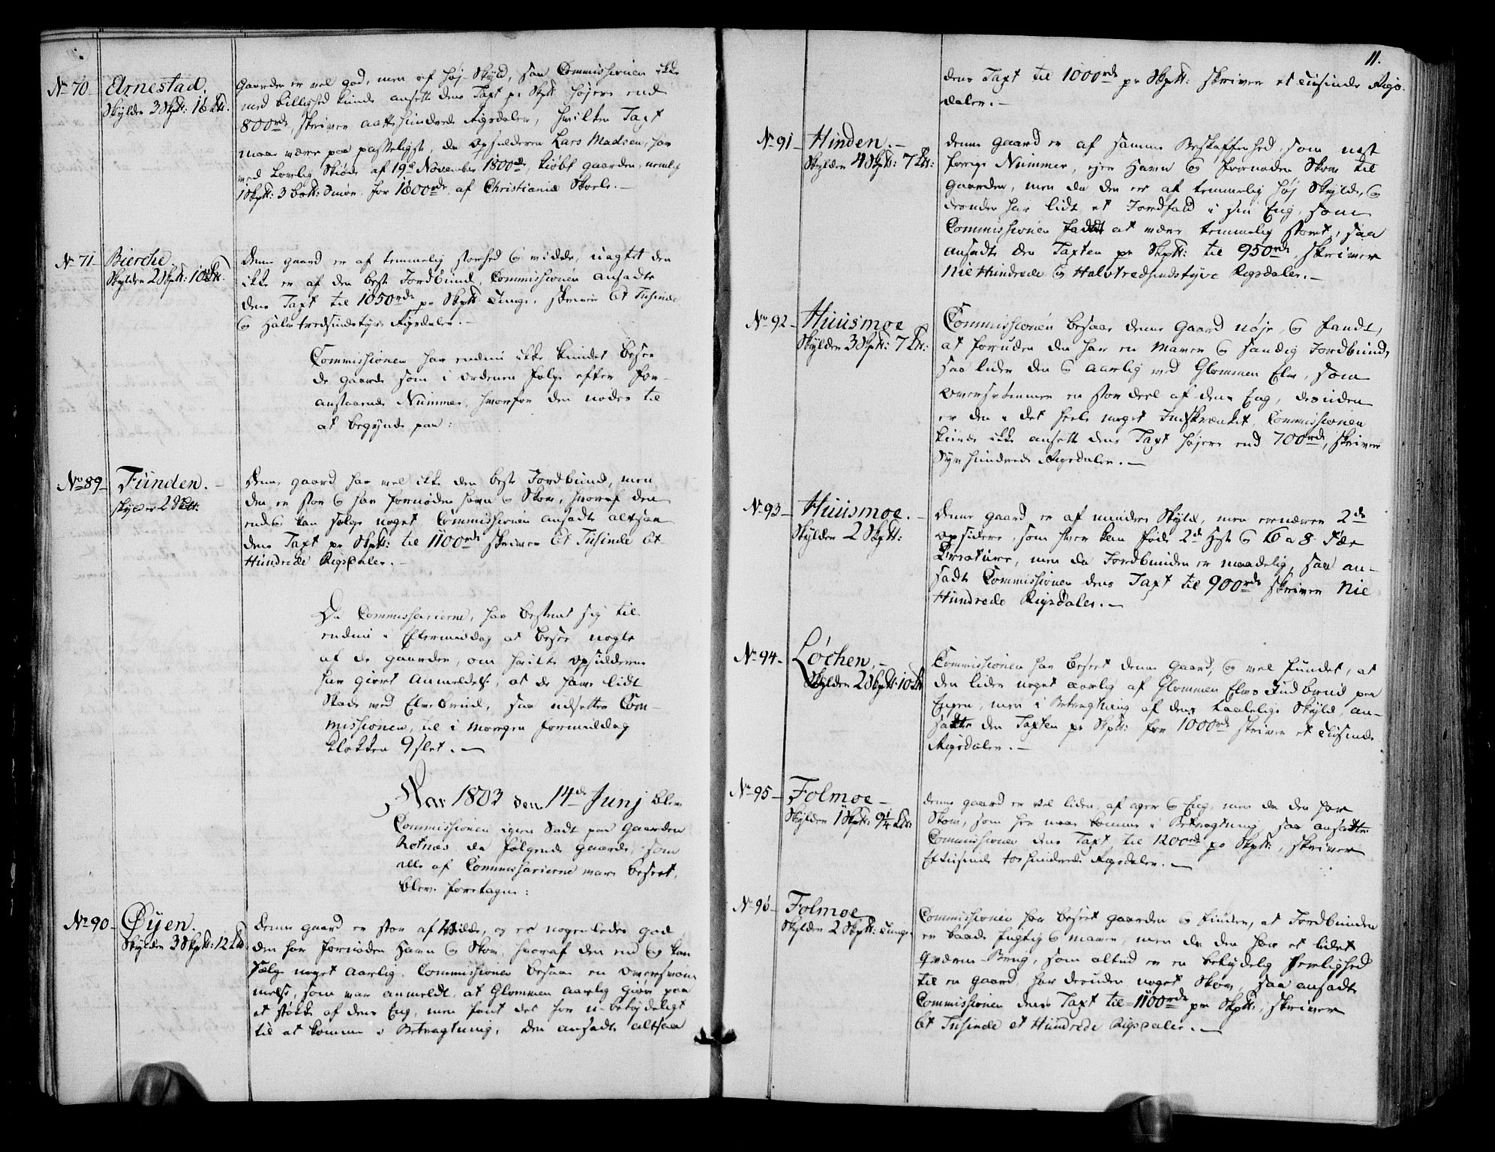 No 70. Arnestad.
Skylder 3 Skp: 16 Lb.
Gaarden er vel god, men af høj Skyld, saa Commissionen ikke
med billighed kunde ansette dens Taxt pr Skp: højere end
800rd, skriver aattehundrede Rigsdaler, hvilken Taxt
maae være paa passeligst, da Opsidderen Lars Madsen, har
ved Lovlig Skiøde af 19de November 1800de, kiøbt gaarden, nemlig
1 Skp: 3 for 1800rd, af Christiania Skole.
No 71. Bierche.
Skylder 2 Skp: 10 Lb.
Denne gaard er af temmelig storhed & vidde, uagtet den
ikke er af den beste Jordbund, Commissionen ansadte
dens Taxt til 1050rd pr Skp Tunge, skriver Et Tusinde
& Halvtredsindstyve Rigsdaler.
Commissionen har endnu ikke kundet besee
de gaarde som i ordenen følge efter for-
anstaaende Nummer, hvorfor den nødes til
at begynde paa:
No 89. Funden.
Skylder 2 Skp.
Denne gaard har vel ikke den beste Jordbund, men
den er stor & har fornøden havn & Skov, hvoraf den
endnu kan selge noget. Commissionen ansadte altsaa
dens Taxt pr Skp: til 1100rd skriver Et Tusinde Et
Hundrede Rigsdaler.
Da Commissairerne, har bestemt sig til
endnu i Eftermiddag at besee nogle
af de gaarder, om hvilke Opsidderne
har giort Anmeldelse, at de have lidt
Skade ved Elvebrud, saa udsettes Com-
missionen til i morgen formiddag
Klokken 9 slet.
Aar 1803 den 14de Junj blev
Commissionen igien sadt paa Gaarden
Hofnæs da følgende gaarde, som
alle af Commissairerne vare beseet,
blev foretagne:
No 90. Øyen.
Skylder 3 Skp: 12 Lb.
Denne gaard er stor af Vidde, og er nogenledes god
den har fornøden Havn & Skov, hvoraf den end & kan
sælge noget Aarlig. Commissionen besaae en Oversvøm-
melse, som var anmeldt, at Glommen aarlig giør paa
et støkke af dens Eng, men fant det for u-betydeligt
til at komme i Betragtning, den ansadte altsaa
11.
dens Taxt til 1000rd pr Skp: skriver et tusinde Rigs-
daler.
No 91. Hinden.
Skylder 4 Skp: 7 Lb:
Denne gaard er af samme Beskaffenhed, som nest
forrige Nummer, ejer Havn & fornøden Skov til
gaarden, men da den er af temmelig høj Skyld, &
desuden har lidt et Jordfald i sin Eng, som
Commissionen fandt at være temmelig stort, saa
ansadte den Taxten pr Skp: til 950rd skriver
Nie Hundrede & Halvtredsindstyve Rigsdaler.
No 92. Huusmoe
Skylder 3 Skp: 7 Lb:
Commissionen besaae denne Gaard nøje, & fandt,
at foruden den har en Maver & sandig Jordbund,
saa lider den & aarlig ved Glommen Elv, som
oversvømmer en stor deel af dens Eng, desuden
er den i det heele noget Indskrænket. Commissionen
kunde ikke ansette dens Taxt højere end 700rd, skriver
Syv hundrede Rigsdaler.
No 93. Huusmoe.
Skylder 2 Skp:
Denne gaard er af mindre Skyld, men ernærer 2de
Opsiddere, som hver kan føde 2de Hest & 6 a 8 Fæe
Creature, men da Jordbunden er maadelig, saa an-
sadte Commissionen dens Taxt til 900rd skriver Nie
Hundrede Rigsdaler.
No 94. Løchen.
Skylder 2 Skp: 10 Lb
Commissionen har beseet denne gaard, & vel fundet, at
den lider noget aarlig af Glommen Elvs Indbrud paa
Engen, men i Betragtning af dens taalelige Skyld an-
sadte den Taxten pr Skp: for 1000rd skriver et tusinde
Rigsdaler.
No 95. Folmoe
Skylder 1 Skp: 9¼ Lb:
Denne gaard er vel liden, af ager & Eng, men da den har
Skov, som her maae komme i Betragtning, saa ansadte
Commissionen dens Taxt til 1200rd pr Skp:, skriver
Ettusinde tohundrede Rigsdaler.
No 96. Folmoe
Skylder 2 Skp: tunge.
Commissionen har beseet gaarden & finder, at Jordbunden
er baade fugtig & maver, men da den har et lidet
Qværne-Brug, som altid er en betydelig herlighed
til en gaard, har desuden noget Skov, saa ansadte
Commissionen dens Taxt til 1100rd pr Skp:, skriver
Et Tusinde et Hundrede Rigsdaler.